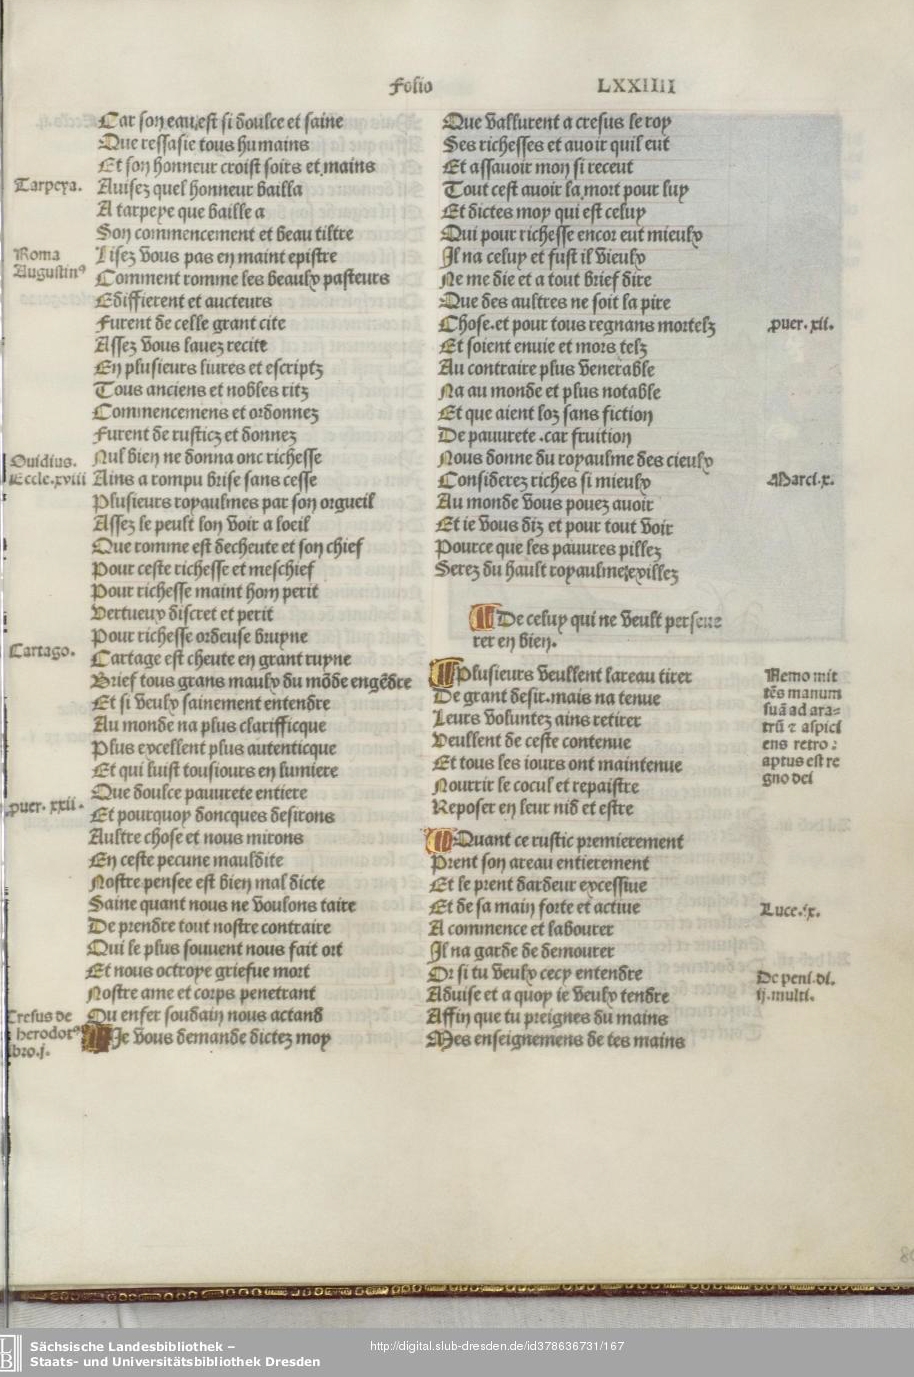 Folio LXXIIII
Car son eau est si doulce et saine
Que ressasie tous humains
Et son honneur croist soirs et mains
Tarpeya.
Auisez quel honneur bailla
A tarpeye que baille a
Son commencement et beau tiltre
Roma
Augustin9
Lisez vous pas en maint epistre
Comment comme les beaulx pasteurs
Ediffierent et aucteurs
Furent de celle grant cite
Assez vous sauez recite
En plusieurs liures et escriptz
Tous anciens et nobles ritz
Commencemens et ordonnez
Furent de rusticz et donnez
Ouidius.
Eccle.xviii
Nul bien ne donna onc richesse
Ains a rompu brise sans cesse
Plusieurs royaulmes par son orgueil
Assez le peult lon voir a loeil
Que romme est decheute et son chief
Pour ceste richesse et meschief
Pour richesse maint hom perit
Vertueux discret et perit
Pour richesse ordeuse bruyne
Cartago.
Cartage est cheute en grant ruyne
Brief tous grans maulx du mõde engẽdre
Et si veulx sainement entendre
Au monde na plus clarifficque
Plus excellent plus autenticque
Et qui luist tousiours en lumiere
Que doulce pauurete entiere
puer. xxii.
Et pourquoy doncques desirons
Aultre chose et nous mirons
En ceste pecune mauldite
Nostre pensee est bien mal dicte
Saine quant nous ne voulons taire
De prendre tout nostre contraire
Qui le plus souuent nous fait ort
Et nous octroye griefue mort
Nostre ame et corps penetrant
Cresus de
herodot9
bro.j.
Ou enfer soudain nous actand
Je vous demande dictez moy
Que vallurent a cresus le roy
Ses richesses et auoir quil eut
Et assauoir mon si receut
Tout cest auoir la mort pour luy
Et dictes moy qui est celuy
Qui pour richesse encor eut mieulx
Il na celuy et fust il vieulx
Ne me die et a tout brief dire
Que des aultres ne soit la pire
Chose.et pour tous regnans mortelz
puer. xii.
Et soient enuie et mors telz
Au contraire plus venerable
Na au monde et plus notable
Et que aient loz sans fiction
De pauurete .car fruition
Nous donne du royaulme des cieulx
Considerez riches si mieulx
Marci.x.
Au monde vous pouez auoir
Et ie vous diz et pour tout voir
Pource que les pauures pillez
Serez du hault royaulme exillez
De celuy qui ne veult perseue
rer en bien.
Plusieurs veullent lareau tirer
De grant desir.mais na tenue
Leurs voluntez ains retirer
Veullent de ceste contenue
Et tous les iours ont maintenue
Nourrir le cocul et repaistre
Reposer en leur nid et estre
Nemo mit
tẽs manum
suã ad ara=
trũ ⁊ aspici
ens retro :
aptus est re
gno dei
Quant ce rustic premierement
Prent son areau entierement
Et le prent dardeur excessiue
Et de sa main forte et actiue
Luce.ix.
A commence et labourer
Il na garde de demourer
Or si tu veulx cecy entendre
De peni.di.
ij.multi.
Aduise et a quoy ie veulx tendre
Affin que tu preignes du mains
Mes enseignemens de tes mains
Sächsische Landesbibliothek –
Staats- und Universitätsbibliothek Dresden
http://digital.slub-dresden.de/id378636731/167